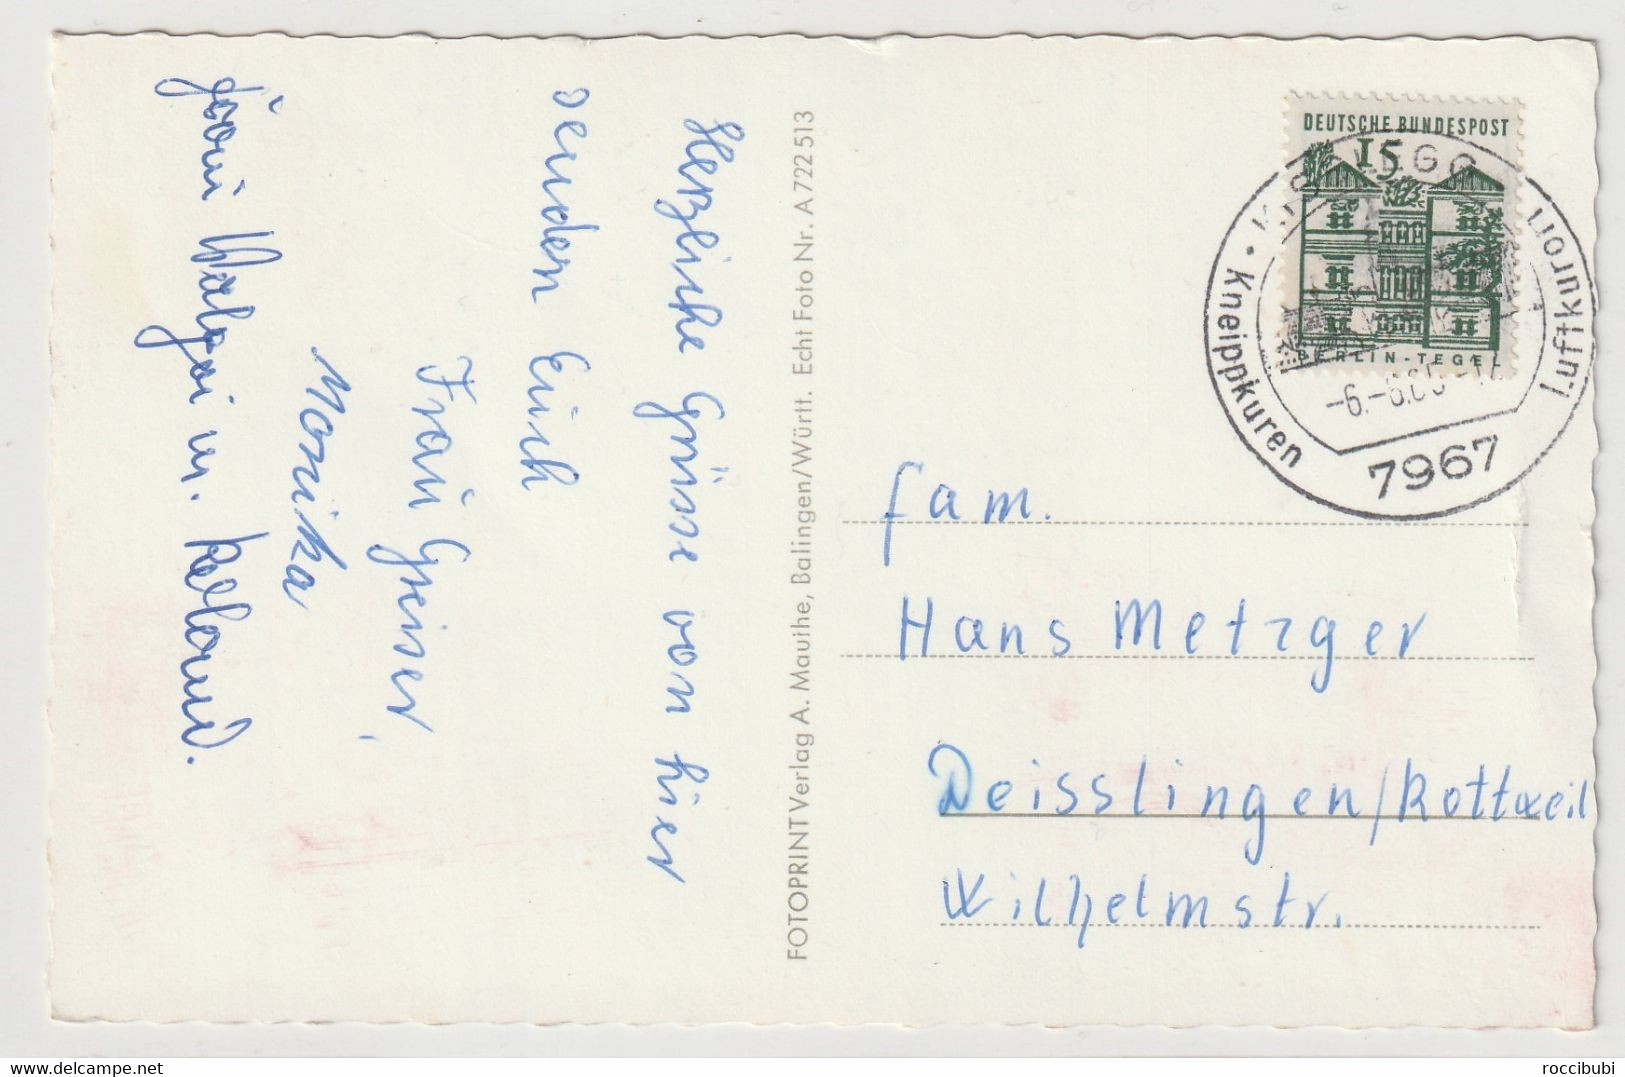 Herzliche Grüsse von hier
senden Euch
Frau Geiser,
Monika
FOTOPRINT Verlag A. Mauthe, Balingen/Württ. Echt Foto Nr. A 722 513
DEUTSCHE BUNDESPOST
15
BERLIN-TEGEL
Luftkurort
• Kneippkuren
7967
Fam.
Hans Metzger
Deisslingen/Rottweil
Wilhelmstr.
delcampe.net
roccibubi